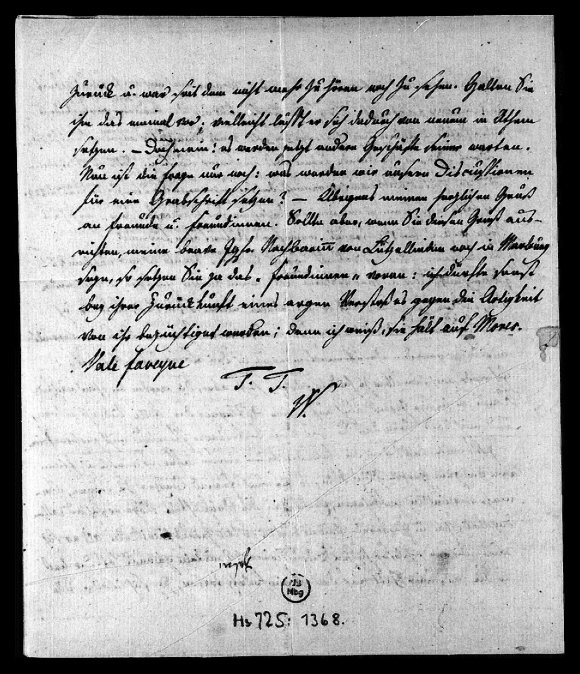 zurück u. war seit dem nicht mehr zu hören noch zu sehen. Halten Sie
ihm das einmal vor; vielleicht läßt er sich dadurch von neuem in Athem
setzen. – Doch nein: es werden jetzt andere Geschäfte seiner warten.
Nun ist die Frage nur noch: was werden wir unsern Discussionen
für eine Grabschrift setzen? – Übrigens meinen herzlichen Gruß
an Freunde u. Freundinnen. Sollte aber, wenn Sie diesen Gruß aus-
richten, meine Nachbarinn von noch in Marburg
seyn, so setzen Sie ja das „Freundinnen“ voran: ich dürfte sonst
bey ihrer Zurückkunft eines argen Verstoßes gegen die Artigkeit
von ihr bezüchtiget werden; denn ich weiß, sie hält auf Mores.
Vale faveque
T. T.
W.
Hs 725: 1368.